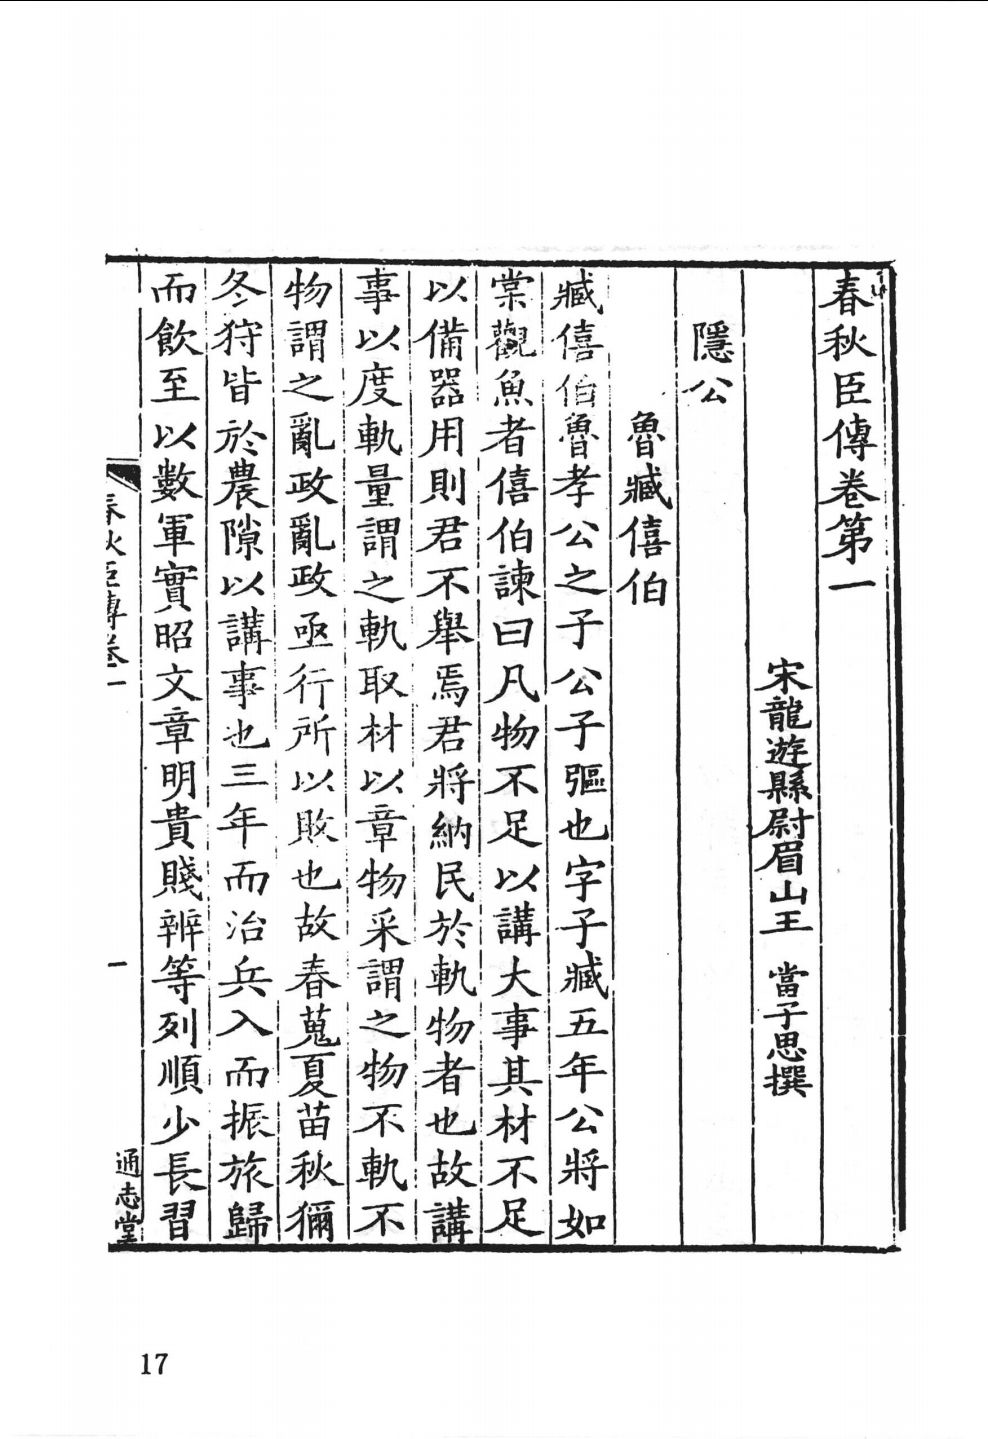 春秋臣傳卷第一
宋龍遊縣尉眉山王　當子思撰
隱公
魯臧僖伯
臧僖伯魯孝公之子公子彄也字子臧五年公將如
棠觀魚者僖伯諫曰凡物不足以講大事其材不足
以備器用則君不舉焉君將納民於軌物者也故講
事以度軌量謂之軌取材以章物采謂之物不軌不
物謂之亂政亂政亟行所以敗也故春蒐夏苗秋獮
冬狩皆於農隙以講事也三年而治兵入而振旅歸
而飲至以數軍實昭文章明貴賤辨等列順少長習
春秋臣傳卷一
一
通志堂
17